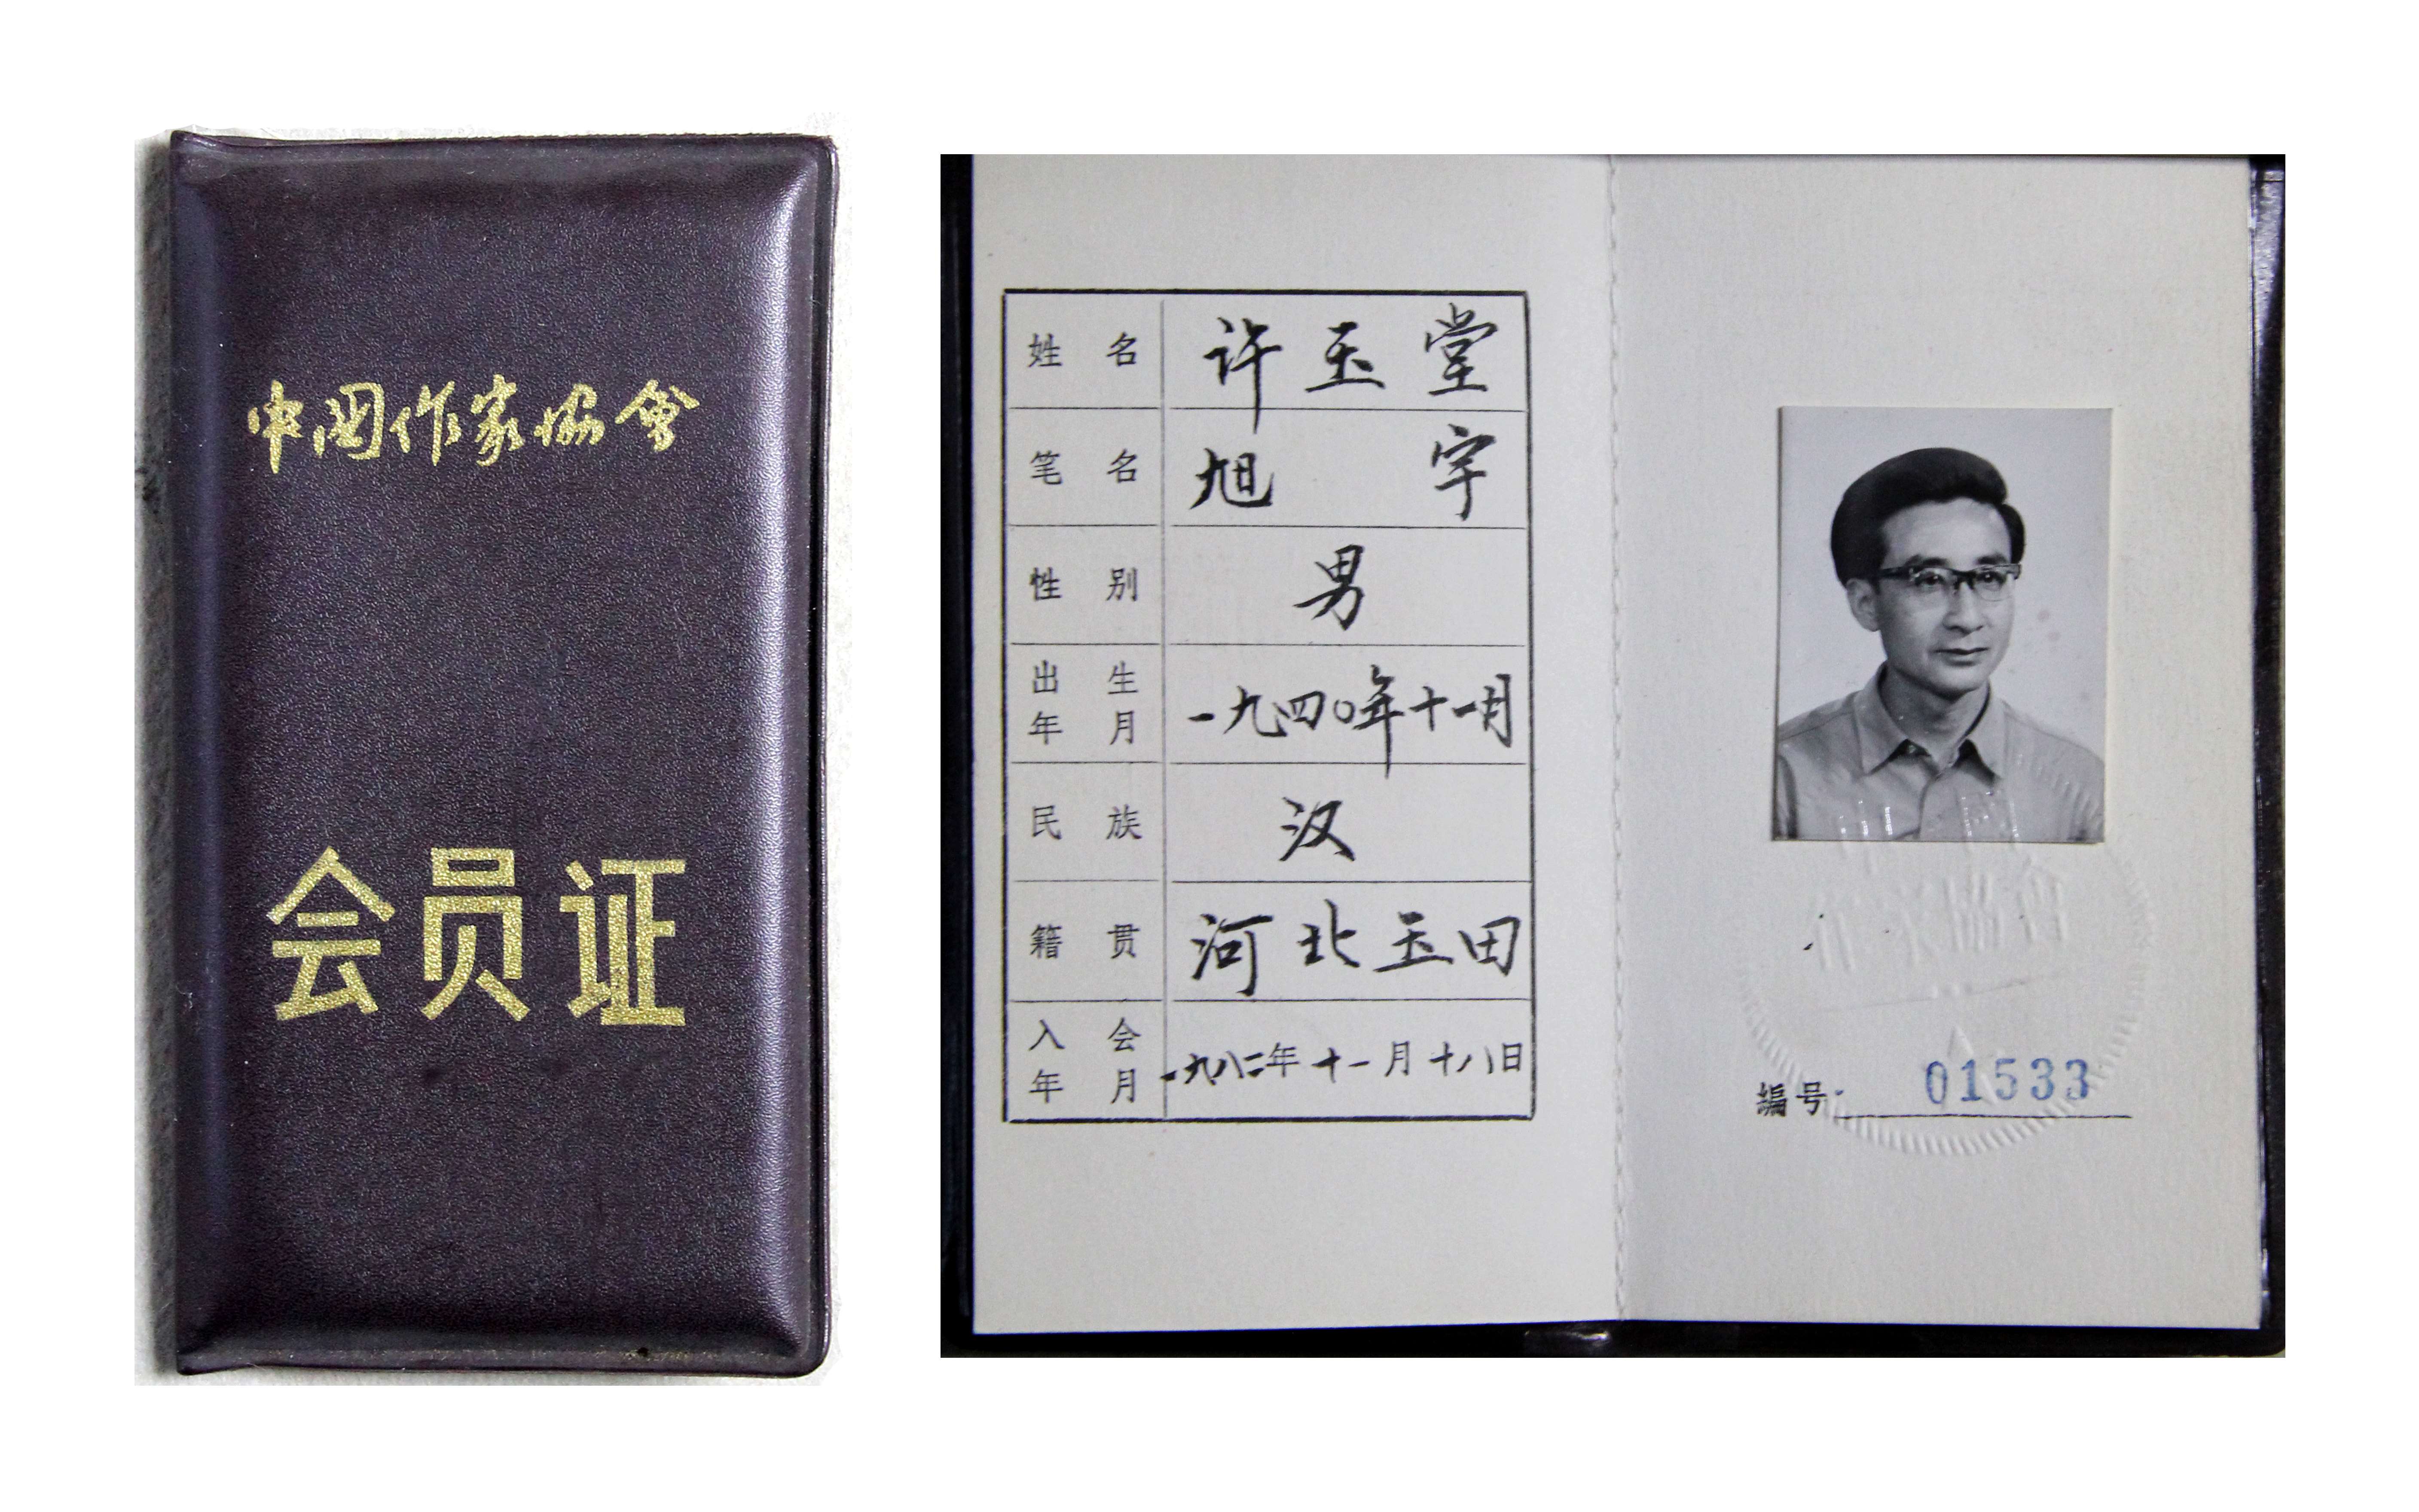 中國作家協會
会员证
姓名 许玉堂
笔名 旭宇
性别 男
出生年月 一九四〇年十一月
民族 汉
籍贯 河北玉田
入会年月 一九八二年十一月十八日
作家協會
编号: 01533